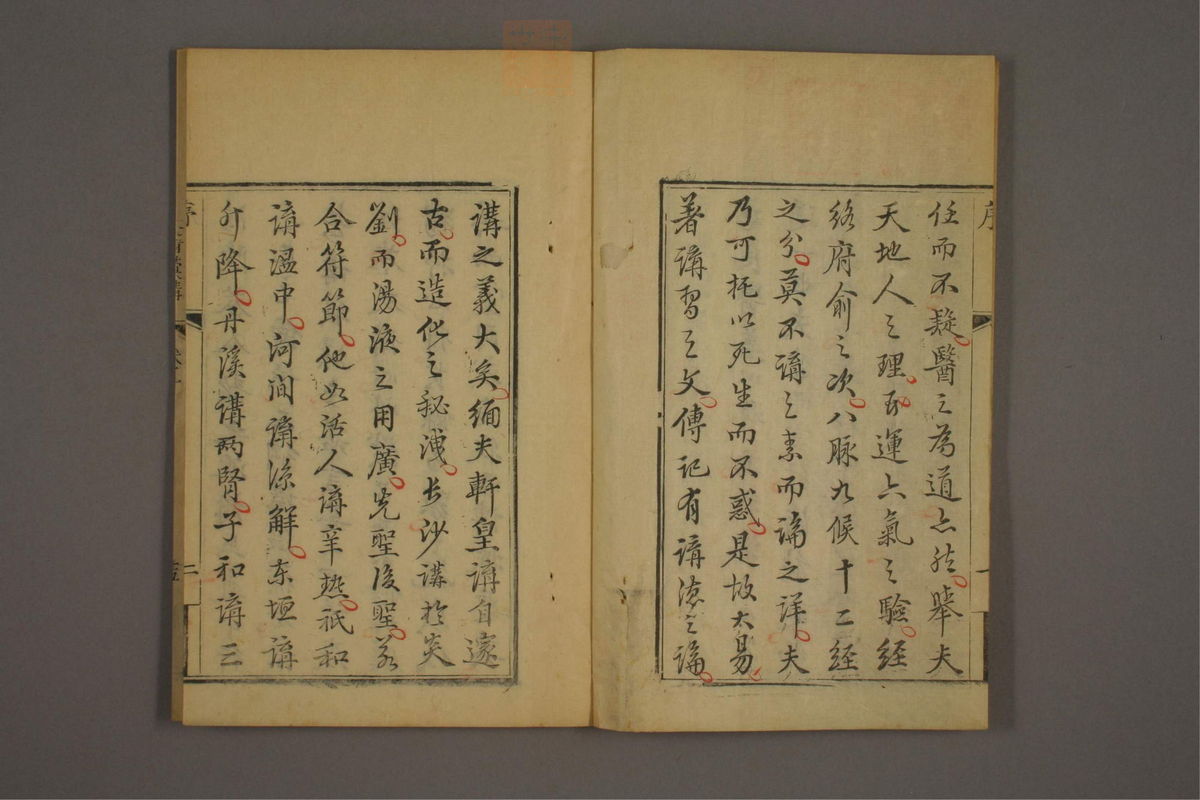 任而不疑醫之為道亦然舉夫
天地人之理五運六氣之驗經
絡府俞之次八脉九候十二經
之分莫不講之素而論之詳夫
乃可托以死生而不惑是故大易
著講習之文傳記有講德之論
講之義大矣緬夫軒皇講自邃
古而造化之秘洩長沙講於炎
劉而湯液之用廣先聖後聖若
合符節他如活人講辛熱祇和
講温中河澗講凉解东垣講
升降丹溪講两腎子和講三
序
序